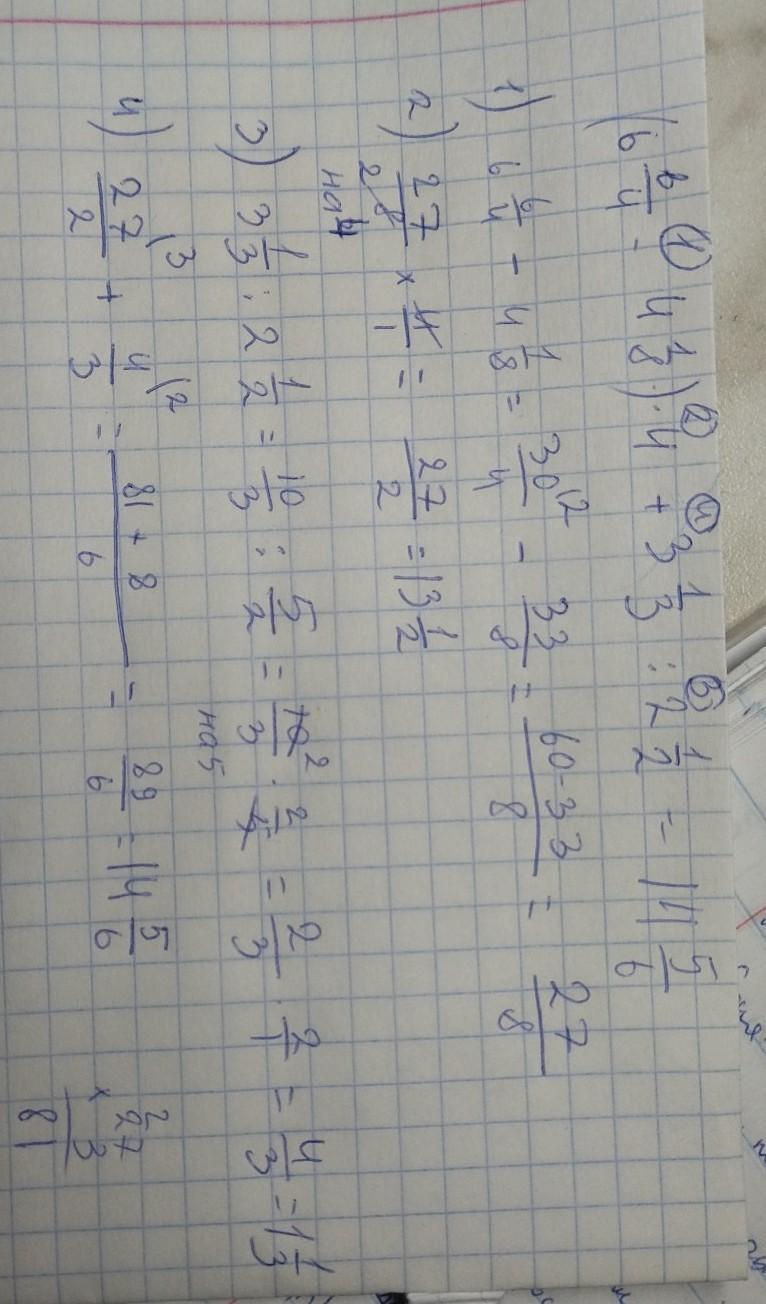 (6 6/4 - 4 1/8) · 4 + 3 1/3 : 2 1/2 = 14 5/6
1) 6 6/4 - 4 1/8 = 30/4 (2 - 33/8 = 60-33/8 = 27/8
2) 27/8 2 × 4/1 = 27/2 = 13 1/2
на 4
3) 3 1/3 : 2 1/2 = 10/3 : 5/2 = 10 2/3 · 2/5 = 2/3 · 2/1 = 4/3 = 1 1/3
на 5
4) 27/2 (3 + 4/3 (2 = 81 + 8/6 = 89/6 = 14 5/6
2
27
× 3
81